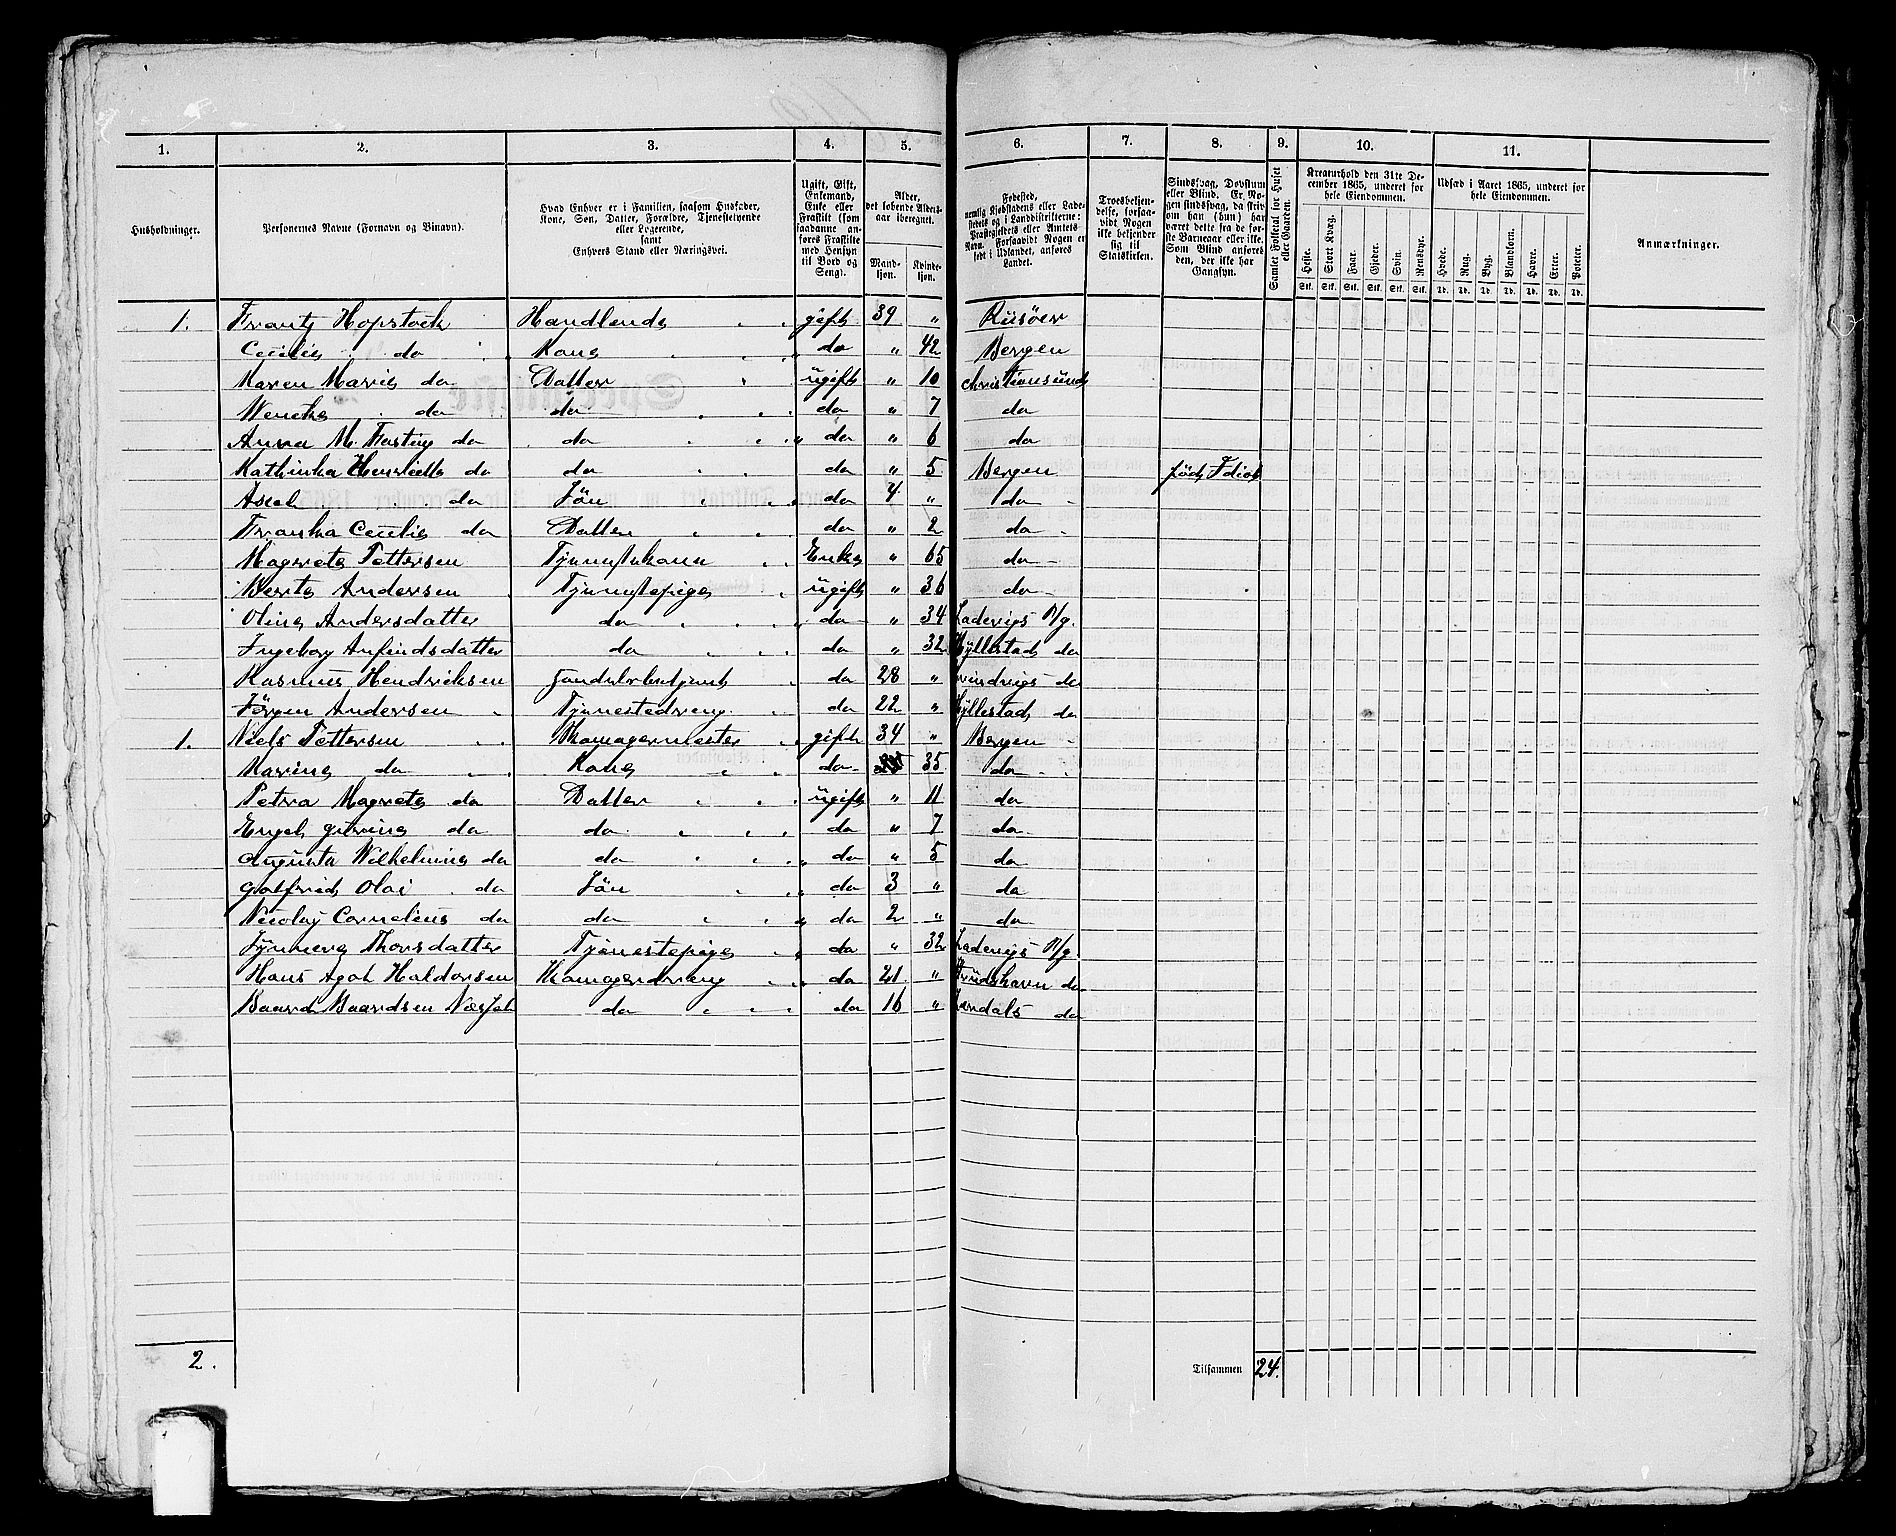 1. 2. 3. 4. 5. 6. 7. 8. 9. 10. 11.
Husholdninger.
Personernes Navne (Fornavn og Binavn).
Hvad Enhver er i Familien, saasom Husfader,
Kone, Søn, Datter, Forældre, Tjenestetyende
eller Logerende,
samt
Enhvers Stand eller Næringsvei.
Ugift, Gift,
Enkemand,
Enke eller
Fraskilt (som
saadanne an-
føres Fraskilte
med Hensyn
til Bord og
Seng).
Alder,
det løbende Alders-
aar iberegnet.
Mand-
kjøn.
Kvinde-
kjøn.
Fødested,
nemlig Kjøbstadens eller Lade-
stedets og i Landdistrikterne:
Præstegjeldets eller Amtets
Navn. Forsaavidt Nogen er
født i Udlandet, anføres
Landet.
Troesbekjen-
delse, forsaa-
vidt Nogen
ikke bekjender
sig til
Statskirken.
Sindssvag, Døvstum
eller Blind. Er No-
gen sindssvag, da skriv
om han (hun) har
været dette fra de før-
ste Barneaar eller ikke.
Som Blind anføres
den, der ikke har
Gangsyn.
Samlet Folketal for Huset
eller Gaarden.
Kreaturhold den 31te De-
cember 1865, underet for
hele Eiendommen.
Heste. Stort Kvæg. Faar. Gjeder. Svin. Rensdyr.
Stk. Stk. Stk. Stk. Stk. Stk.
Udsæd i Aaret 1865, underet for
hele Eiendommen.
Hvede. Rug. Byg. Blandkorn. Havre. Erter. Poteter.
Td. Td. Td. Td. Td. Td. Td.
Anmærkninger.
1. Frantz Hopstock Handlende gift 39 " Riisöer
Cecilie do Kone do " 42 Bergen
Maren Marie do Datter ugift " 10 Christiansund
Wencke do do do " 7 do
Anna M. Fasting do do do " 6 do
Kathinka Henriette do do do " 5 Bergen født Idiot
Axel do Sön do 4 " do
Franka Cecilie do Datter do " 2 do
Magrete Pettersen Tjenestekone Enke " 65 do
Berte Andersen Tjenestepige ugift " 36 do
Oline Andersdatter do do " 34 Ladevigs P/g.
Ingeborg Anfindsdatter do do " 32 Hyllestad do
Rasmus Hendriksen Handelsbetjent do 28 " Evindvigs do
Jørgen Andersen Tjenestedreng do 22 " Hyllestad do
1. Niels Pettersen Skomagermester gift 34 " Bergen
Marine do Kone do 35 do
Petra Magrete do Datter ugift " 11 do
Engel do do do " 7 do
Augusta Wilhelmine do do do " 5 do
Gotfried Olai do Sön do 3 " do
Nicolay Cornelius do do do 2 " do
Synneva Thorsdatter Tjenestepige do " 32 Ladevigs P/g.
Hans Agot Haldorsen Skomagerdreng do 21 " do
Baard Baardsen do do 16 " do
2.
Tilsammen 24.